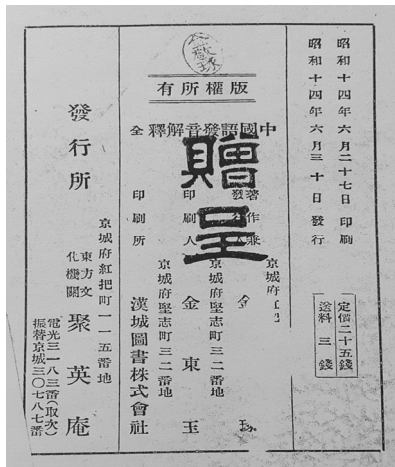 昭和十四年六月二十七日 印刷
昭和十四年六月三十日 發行
定價二十五錢
送料 三 錢
版權所有
中國語發音解釋 全
贈呈
著作兼
京城府
金
京城府堅志町三二番地
印刷人 金東玉
京城府堅志町三二番地
印刷所 漢城圖書株式會社
京城府紅把町一一五番地
發行所
東方文
化機關
聚英庵
電光三一八三番(取次)
振替京城三〇七八七番